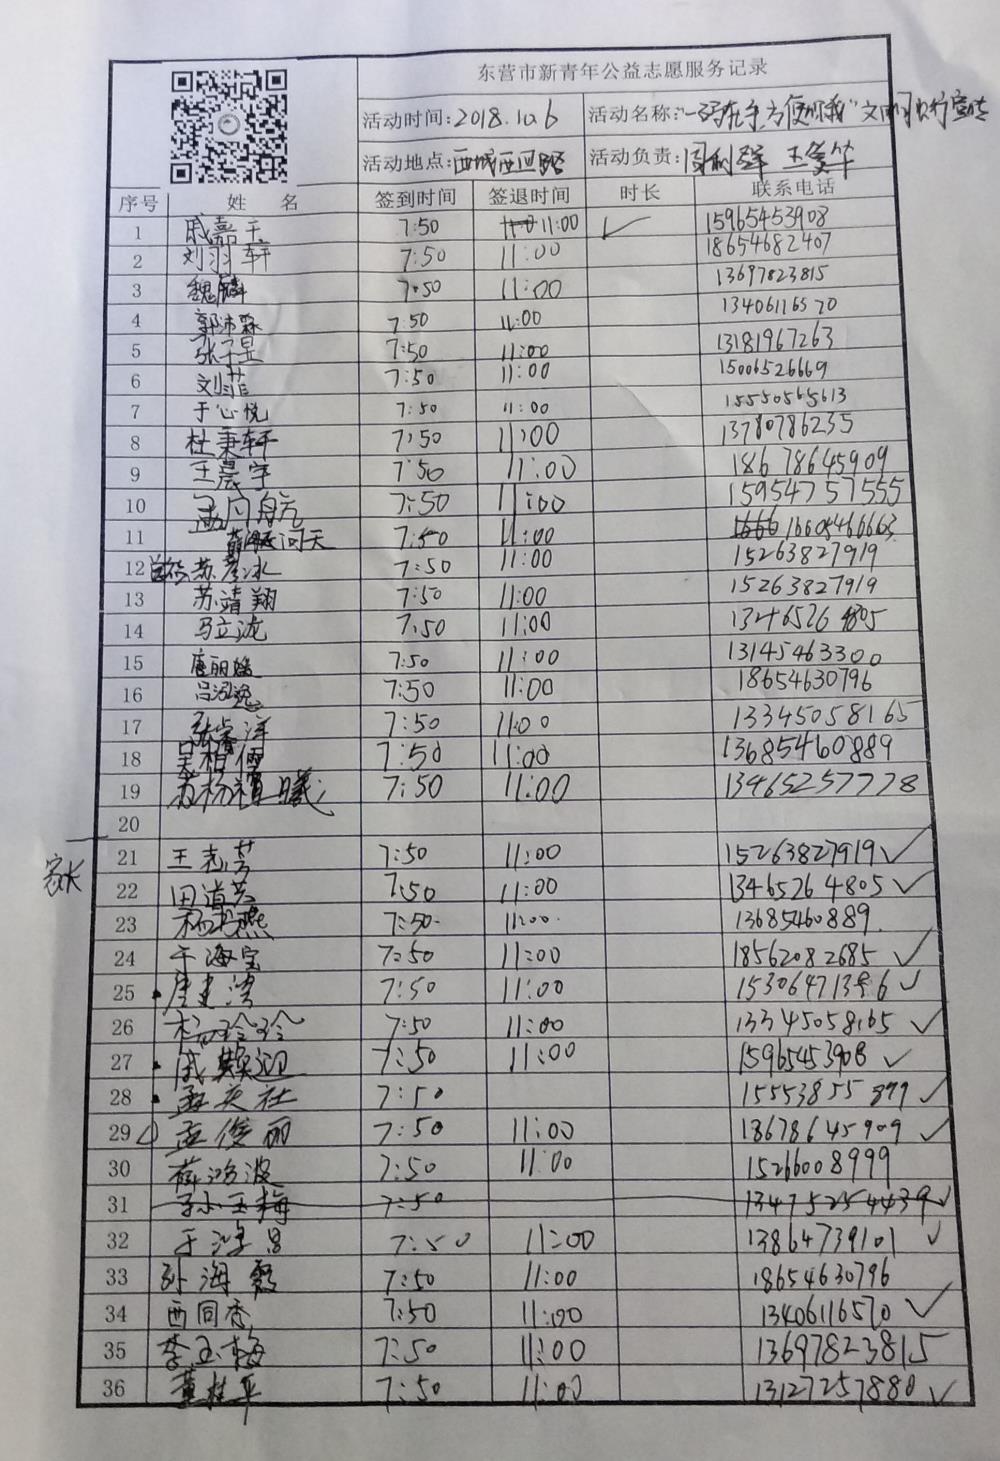 东营市新青年公益志愿服务记录
活动时间: 2018.10.6 活动名称:"一码在手,方便你我"文明同行宣传
活动地点: 西城西四路 活动负责: 周利群
序号 姓 名 签到时间 签退时间 时长 联系电话
1 戚嘉 7:50 11:00 ✓ 15965453908
2 刘羽轩 7:50 11:00 18654682407
3 魏麟 7:50 11:00 13697823815
4 郭沛霖 7:50 11:00 13406116570
5 张子昱 7:50 11:00 13181967263
6 刘菲 7:50 11:00 15006526669
7 于心悦 7:50 11:00 15550565613
8 杜秉轩 7:50 11:00 13780786235
9 王晨宇 7:50 11:00 18678645909
10 孟凡 7:50 11:00 15954757555
11 薛 问天 7:50 11:00 16605466663
12 苏彦冰 7:50 11:00 15263827919
13 苏靖翔 7:50 11:00 15263827919
14 马立泷 7:50 11:00 13465264805
15 唐丽媛 7:50 11:00 13145463300
16 吕泓逸 7:50 11:00 18654630796
17 张睿洋 7:50 11:00 13345058165
18 吴相儒 7:50 11:00 13685460889
19 苏杨 曦 7:50 11:00 13465257778
20
家长
21 王志芳 7:50 11:00 15263827919 ✓
22 田道芸 7:50 11:00 13465264805 ✓
23 杨 燕 7:50 11:00 13685460889
24 于海宝 7:50 11:00 18562082685 ✓
25 唐建 7:50 11:00 153064713 6 ✓
26 杨玲玲 7:50 11:00 13345058165 ✓
27 戚 迎 7:50 11:00 15965453908 ✓
28 孟英社 7:50 15553855 899 ✓
29 孟俊丽 7:50 11:00 18678645909 ✓
30 薛鸿波 7:50 11:00 15266008999
31 李小玉梅 7:50 13475254439 ✓
32 于泽昌 7:50 11:00 13864739101 ✓
33 孙海霞 7:50 11:00 18654630796
34 西同香 7:50 11:00 13406116570 ✓
35 李玉梅 7:50 11:00 13697823815
36 董桂平 7:50 11:00 13127257880 ✓